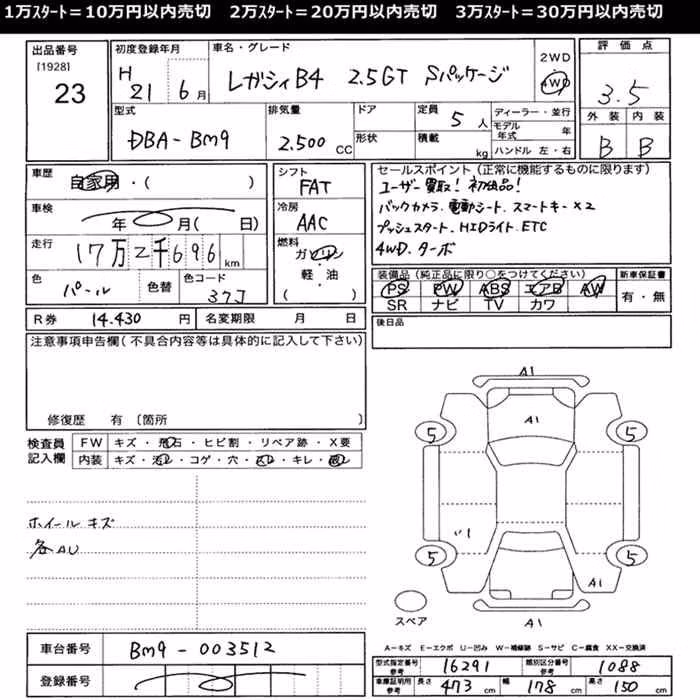 1万ｽﾀｰﾄ＝10万円以内売切　2万ｽﾀｰﾄ＝20万円以内売切　3万ｽﾀｰﾄ＝30万円以内売切
出品番号 [1928] 23
初度登録年月 H 21 6月
車名・グレード レガシィB4 2.5GT Sパッケージ
2WD
4WD
評価点 3.5
外装 内装
B B
型式 DBA-BM9
排気量 2.500 CC
ドア
形状
定員 5人
積載 kg
ディーラー・並行
モデル年式 年
ハンドル 左・右
車歴 自家用・( )
車検 年 月( 日)
走行 17万2千696km
色 パール 色替 色コード 37J
シフト FAT
冷房 AAC
燃料 ガソリン
・
軽・油
( )
セールスポイント(正常に機能するものに限ります)
ユーザー買取!初出品!
バックカメラ.電動シート.スマートキー×2
プッシュスタート.HIDライト.ETC
4WD.ターボ
装備品(純正品に限り○をつけてください)
PS PW ABS エアB AW
SR ナビ TV カワ
新車保証書
有・無
R券 14.430 円 名変期限 月 日
後日品
注意事項申告欄(不具合内容等は具体的に記入して下さい)
修復歴 有〔箇所 〕
検査員記入欄
FW キズ・飛石・ヒビ割・リペア跡・X要
内装 キズ・汚レ・コゲ・穴・スレ・キレ・
ホイールキズ
各AU
A1
A1
5 5
ﾜ1
5 5
A1
A1
スペア
A－キズ E－エクボ U－凹み W－補修跡 S－サビ C－腐食 XX－交換済
車台番号 BM9-003512
登録番号
型式指定番号参考 16291 類別区分番号参考 1088
車庫証明用参考 長さ 473 cm 幅 178 cm 高さ 150 cm